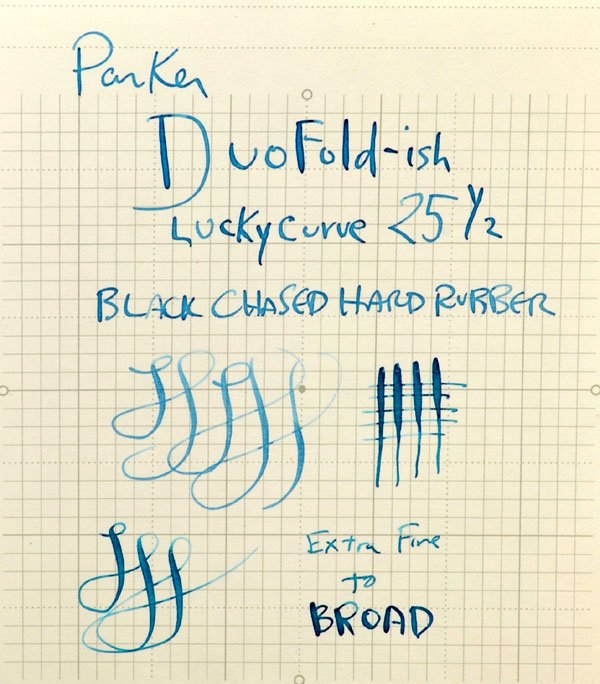 Parker
DuoFold-ish
Lucky Curve 25 1/2
BLACK CHASED HARD RUBBER
Extra Fine
to
BROAD